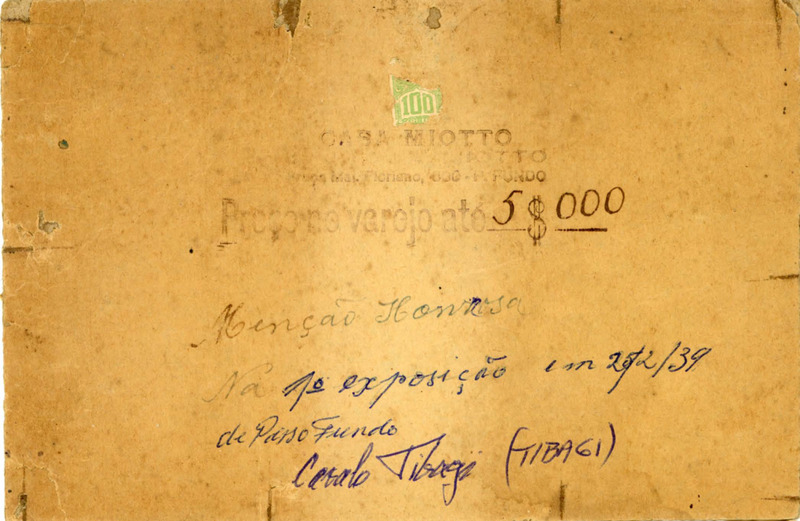 100
CASA MIOTTO
MIOTTO
Mal. Floriano, - P. FUNDO
Preço no varejo até 5$000
Menção Honrosa
Na 1º exposição em /2/39
de Passo Fundo
Cavalo Tibagi (TIBAGI)